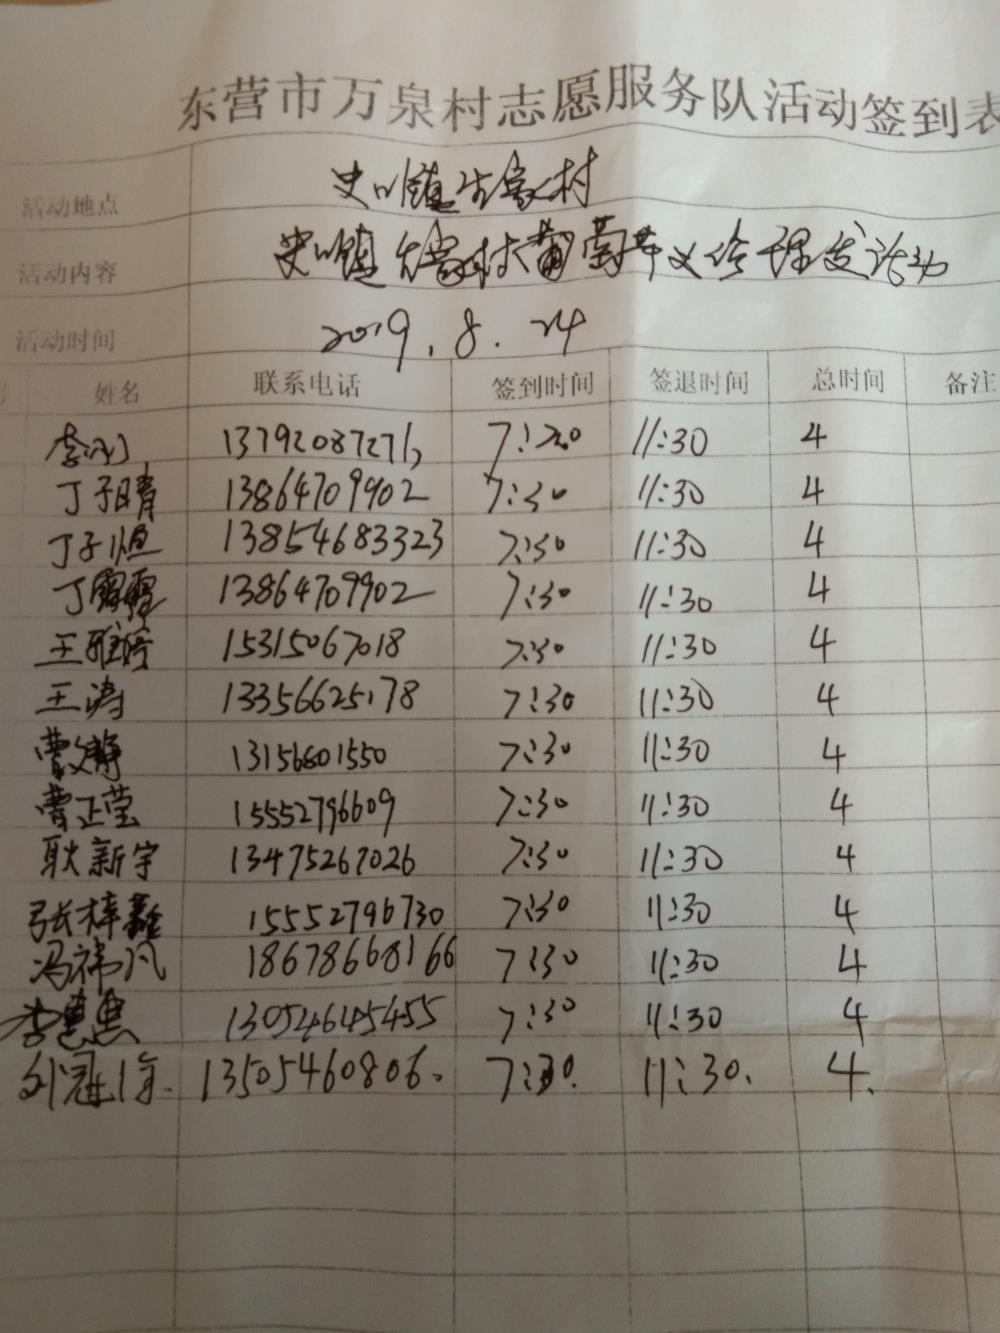 东营市万泉村志愿服务队活动签到表
活动地点 史口镇 家村
活动内容 史口镇 家村葡萄节义诊理发活动
活动时间 2019.8.24
姓名 联系电话 签到时间 签退时间 总时间 备注
李 1379208727 7:30 11:30 4
丁子晴 13864709902 7:30 11:30 4
丁子恒 13854683323 7:30 11:30 4
丁 13864709902 7:30 11:30 4
王雅婷 15315067018 7:30 11:30 4
王涛 13356625178 7:30 11:30 4
曹文静 13156601550 7:30 11:30 4
曹正莹 15552796609 7:30 11:30 4
耿新宇 13475267026 7:30 11:30 4
张梓鑫 15552796730 7:30 11:30 4
冯祎凡 18678668166 7:30 11:30 4
李惠惠 13054645455 7:30 11:30 4
刘冠 13505460806. 7:30. 11:30. 4.